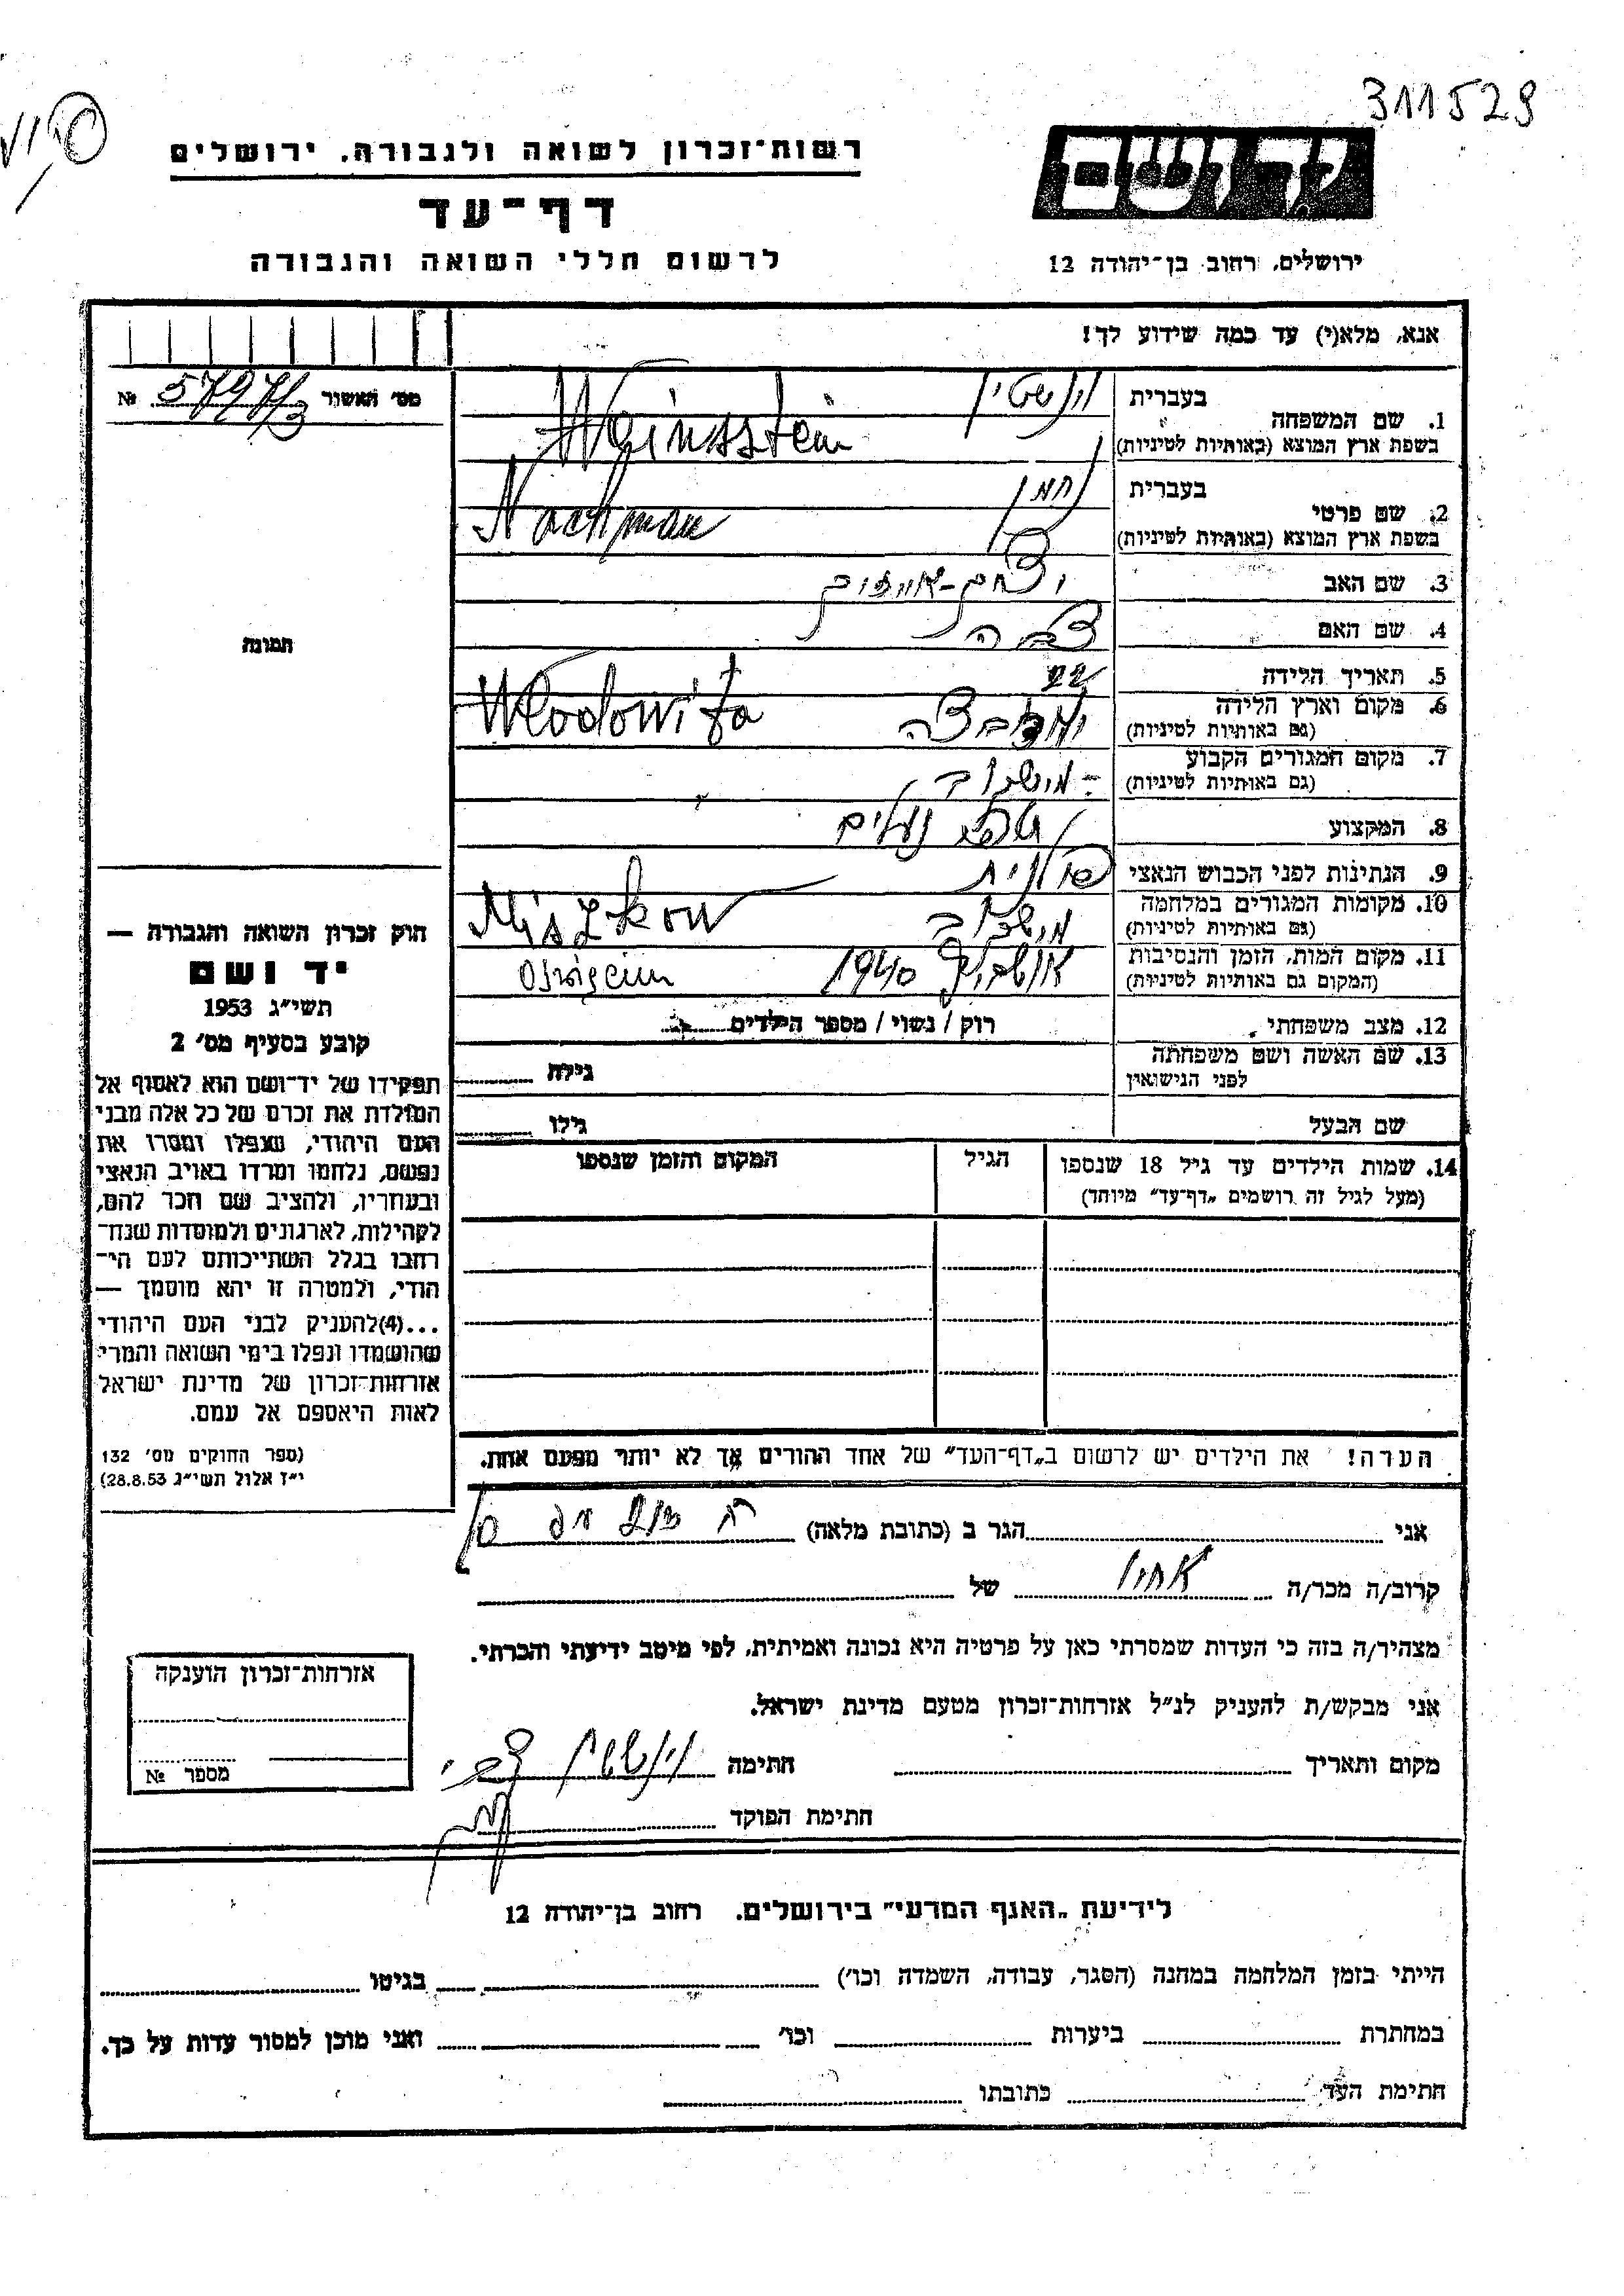 311529
יד ושם
ירושלים, רחוב בן-יהודה 12
רשות-זכרון לשואה ולגבורה, ירושלים
דף-עד
לרשום חללי השואה והגבורה
אנא, מלא(י) עד כמה שידוע לך!
מס' האשור № 5797/3
1. שם המשפחה
בעברית וינשטין
בשפת ארץ המוצא (באותיות לטיניות) Weinsstein
2. שם פרטי
בעברית נחמן
בשפת ארץ המוצא (באותיות לטיניות) Nachman
3. שם האב
4. שם האם
5. תאריך הלידה 22
6. מקום וארץ הלידה
(גם באותיות לטיניות) Wlodowitza
7. מקום המגורים הקבוע
(גם באותיות לטיניות) מישכוב
8. המקצוע נעלים
9. הנתינות לפני הכבוש הנאצי פולנית
10. מקומות המגורים במלחמה מישכוב
(גם באותיות לטיניות) Miszkow
11. מקום המות, הזמן והנסיבות 1940
(המקום גם באותיות לטיניות)
12. מצב משפחתי רוק / נשוי / מספר הילדים
13. שם האשה ושם משפחתה
לפני הנישואין גילה
שם הבעל גילו
14. שמות הילדים עד גיל 18 שנספו הגיל המקום והזמן שנספו
(מעל לגיל זה רושמים „דף-עד" מיוחד)
הערה! את הילדים יש לרשום ב„דף-העד" של אחד ההורים אך לא יותר מפעם אחת.
תמונה
חוק זכרון השואה והגבורה —
יד ושם
תשי"ג 1953
קובע בסעיף מס' 2
תפקידו של יד-ושם הוא לאסוף אל
המולדת את זכרם של כל אלה מבני
העם היהודי, שנפלו ומסרו את
נפשם, נלחמו ומרדו באויב הנאצי
ובעוזריו, ולהציב שם וזכר להם,
לקהילות, לארגונים ולמוסדות שנח-
רבו בגלל השתייכותם לעם הי-
הודי, ולמטרה זו יהא מוסמך —
...(4) להעניק לבני העם היהודי
שהושמדו ונפלו בימי השואה והמרי
אזרחות-זכרון של מדינת ישראל
לאות היאספם אל עמם.
(ספר החוקים מס' 132
י"ז אלול תשי"ג 28.8.53)
אני הגר ב (כתובת מלאה)
קרוב/ה מכר/ה אחיו של
מצהיר/ה בזה כי העדות שמסרתי כאן על פרטיה היא נכונה ואמיתית, לפי מיטב ידיעתי והכרתי.
אני מבקש/ת להעניק לנ"ל אזרחות-זכרון מטעם מדינת ישראל.
מקום ותאריך חתימה וינשטין צבי
חתימת הפוקד
אזרחות-זכרון הוענקה
מספר №
לידיעת „האגף המדעי" בירושלים. רחוב בן-יהודה 12
הייתי בזמן המלחמה במחנה (הסגר, עבודה, השמדה וכו') בגיטו
במחתרת ביערות וכו' ואני מוכן למסור עדות על כך.
חתימת העד כתובתו